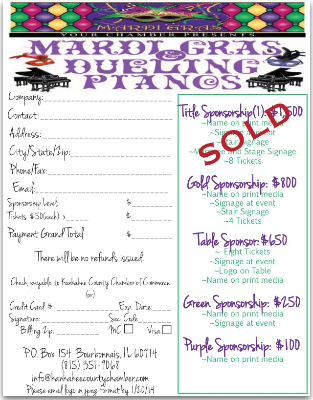 MARDI GRAS
YOUR CHAMBER PRESENTS
MARDI GRAS
&
DUELING
PIANOS
Company:
Contact:
Address:
City/State/Zip:
Phone/Fax:
Email
Sponsorship Level $
Tickets $50(each) x $
Payment Grand Total $
There will be no refunds issued.
Check payable to Kankakee County Chamber of Commerce
(or)
Credit Card # Exp. Date
Signature: Sec. Code
Billing Zip: MC Visa
P.O. Box 154 Bourbonnais, IL 60914
(815) 351-9068
info@kankakeecountychamber.com
Please email logo in jpeg format by 1/20/14
Title Sponsorship(1): $1,500
~Name on print media
~Signage at event
~Stair Signage
and Stage Signage
~8 Tickets
SOLD
Gold Sponsorship: $800
~Name on print media
~Signage at event
~Stair Signage
~4 Tickets
Table Sponsor: $650
~ Eight Tickets
~Signage at event
~Logo on Table
~Name on print media
Green Sponsorship: $250
~Name on print media
~Signage at event
Purple Sponsorship: $100
~Name on print media